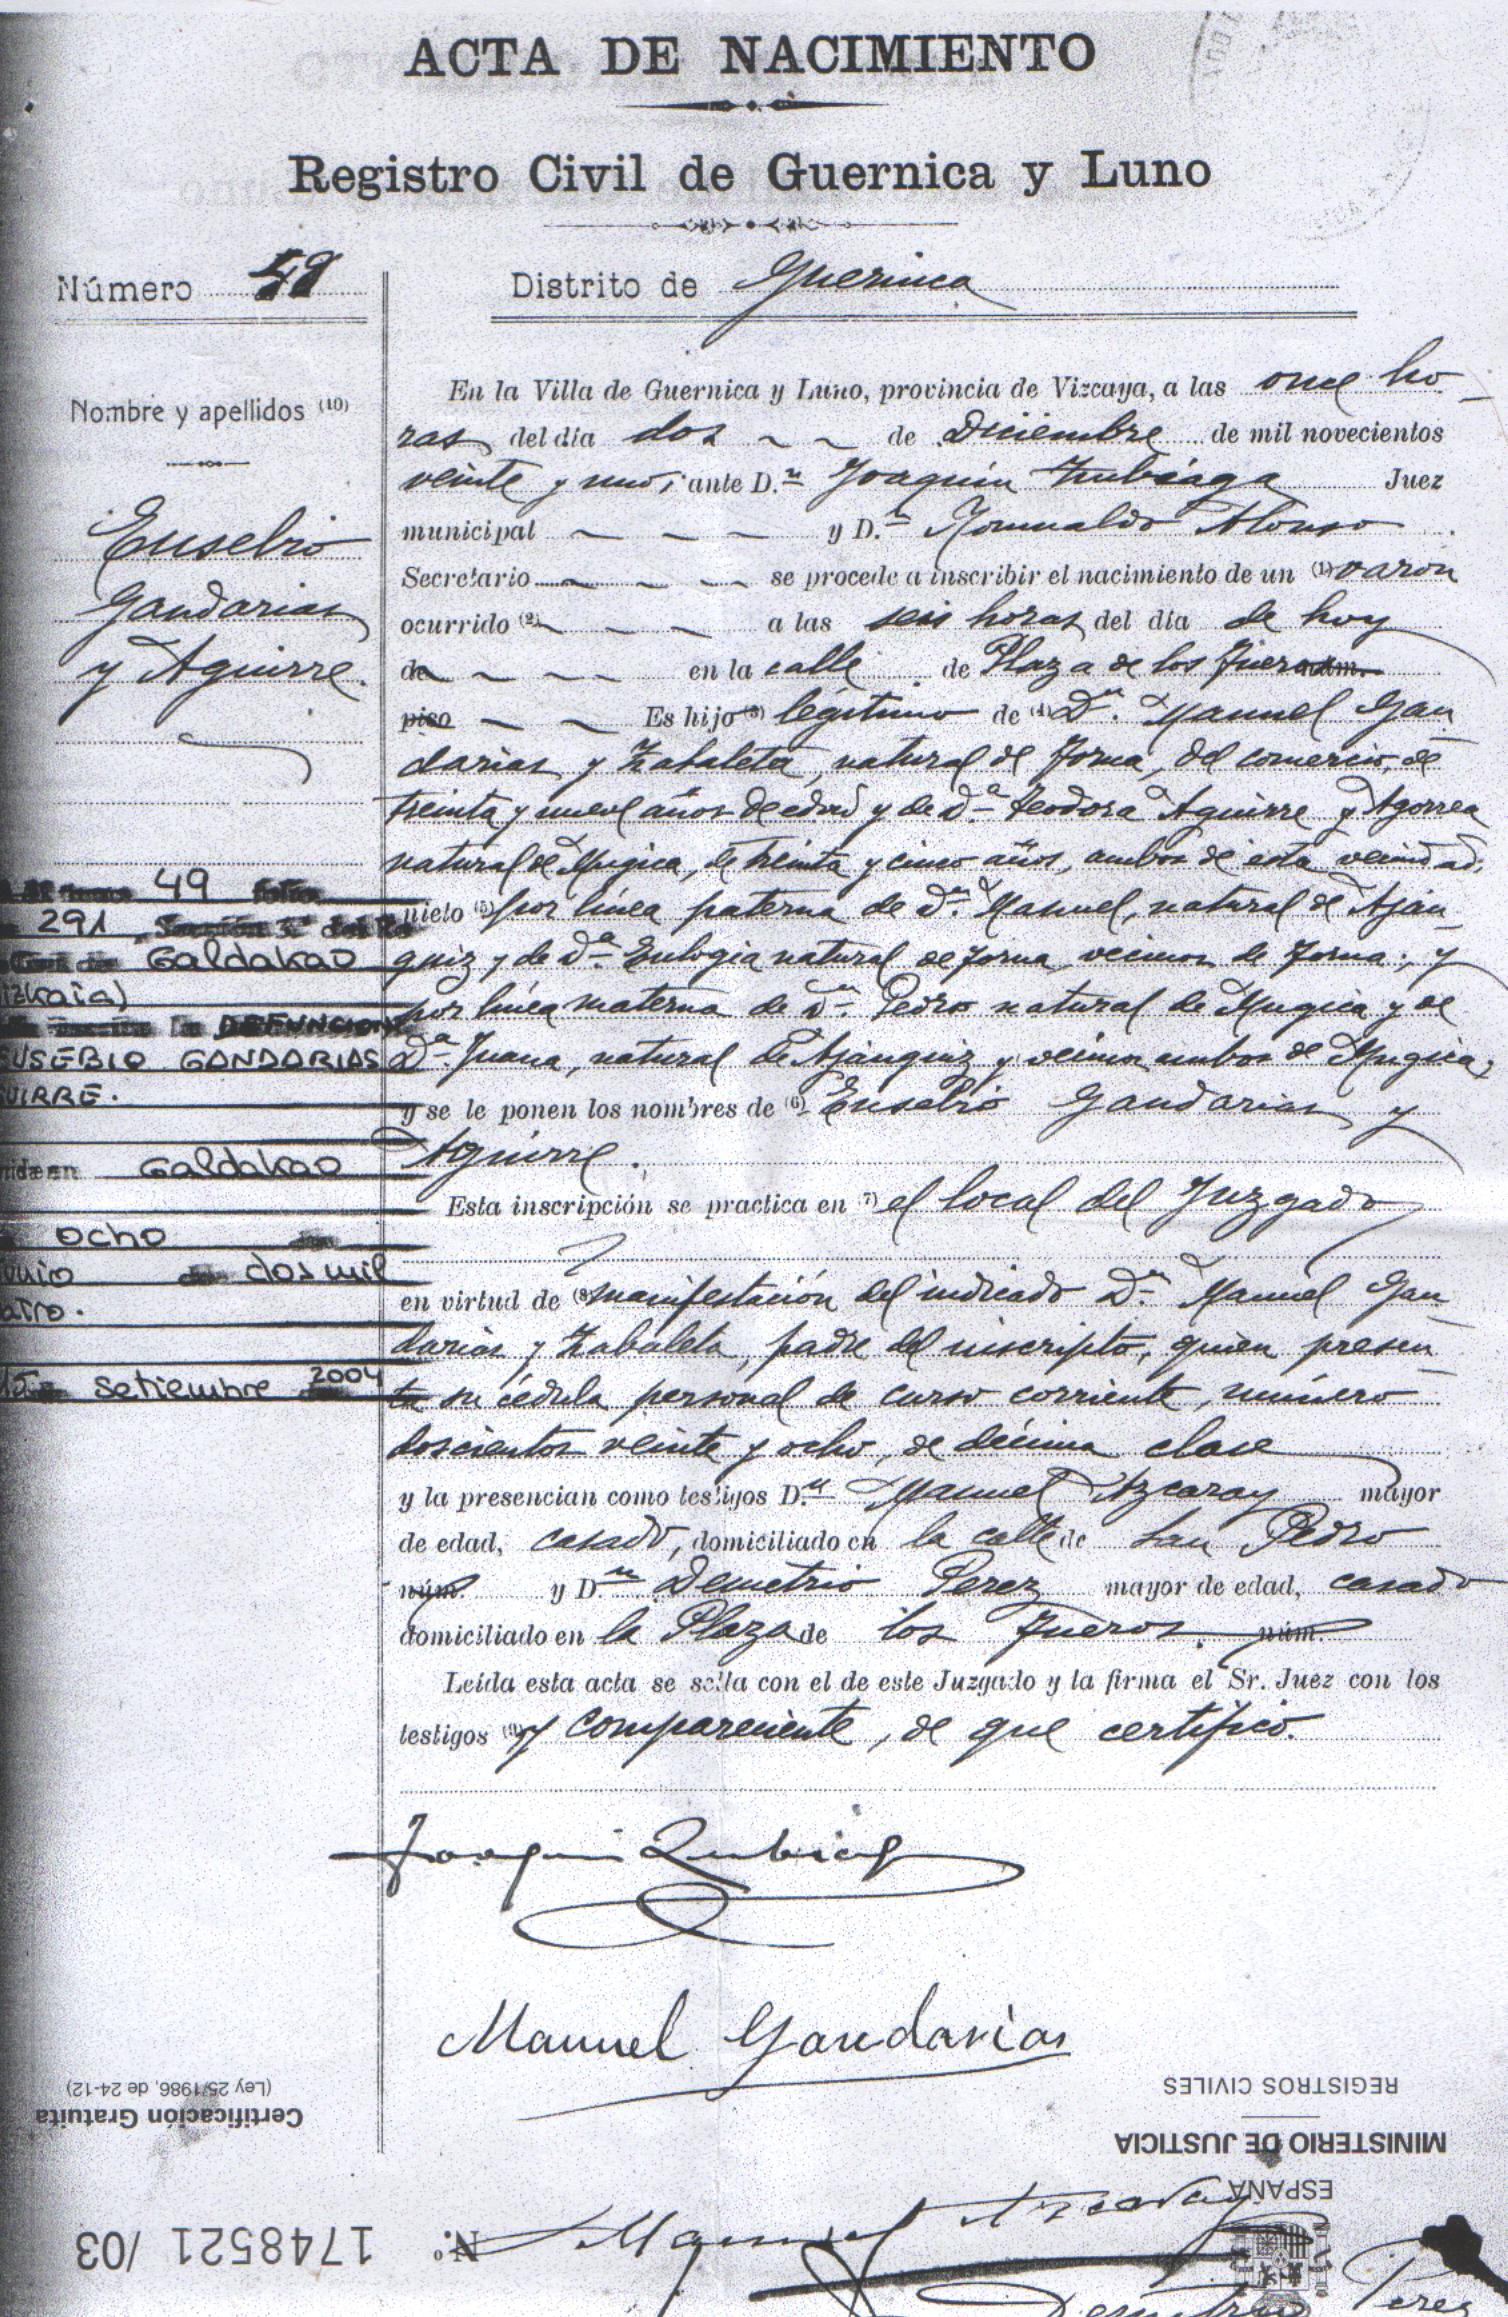 ACTA DE NACIMIENTO
Registro Civil de Guernica y Luno
Número 48
Distrito de Guernica
Nombre y apellidos (10)
Eusebio
Gandarias
y Aguirre.
En la Villa de Guernica y Luno, provincia de Vizcaya, a las once ho-
ras del día dos de Diciembre de mil novecientos
veinte y uno, ante D.n Joaquín Zubiaga Juez
municipal y D.n Romualdo Alonso
Secretario se procede a inscribir el nacimiento de un (1) varon
ocurrido (2) a las seis horas del día de hoy
de en la calle de Plaza de los Fueros núm.
piso Es hijo (3) legitimo de (4) D.n Manuel Gan-
darias y Zabaleta, natural de Forua, del comercio, de
treinta y nueve años de edad y de D.a Teodora Aguirre y Agorrea
natural de Mugica, de treinta y cinco años, ambos de esta vecindad;
nieto (5) por línea paterna de D.n Manuel, natural de Aján-
guiz y de D.a Eulogia natural de Forua, vecinos de Forua; y
por línea materna de D.n Pedro natural de Mugica y de
D.a Juana, natural de Ajánguiz y vecinos ambos de Mugica;
y se le ponen los nombres de (6) Eusebio Gandarias y
Aguirre.
Esta inscripción se practica en (7) el local del Juzgado
en virtud de (8) manifestación del indicado D.n Manuel Gan-
darias y Zabaleta, padre del inscripto, quien presen-
ta su cédula personal de curso corriente, número
doscientos veinte y ocho, de décima clase
y la presencian como testigos D.n Manuel Azcaray mayor
de edad, casado, domiciliado en la calle de San Pedro
núm. y D.n Demetrio Perez mayor de edad, casado
domiciliado en la Plaza de los Fueros. núm.
Leída esta acta se sella con el de este Juzgado y la firma el Sr. Juez con los
testigos (9) y compareciente, de que certifico.
49 folio
291
Galdakao
izkaia)
DEFUNCION
EUSEBIO GANDARIAS
UIRRE.
Galdakao
ocho
unio de dos mil
atro.
15 setiembre 2004
Joaquin Zubiaga
Manuel Gandarias
Manuel Azcaray
Demetrio Perez
(Ley 25/1986, de 24-12)
Certificación Gratuita
REGISTROS CIVILES
MINISTERIO DE JUSTICIA
ESPAÑA
N.º 1748521 /03